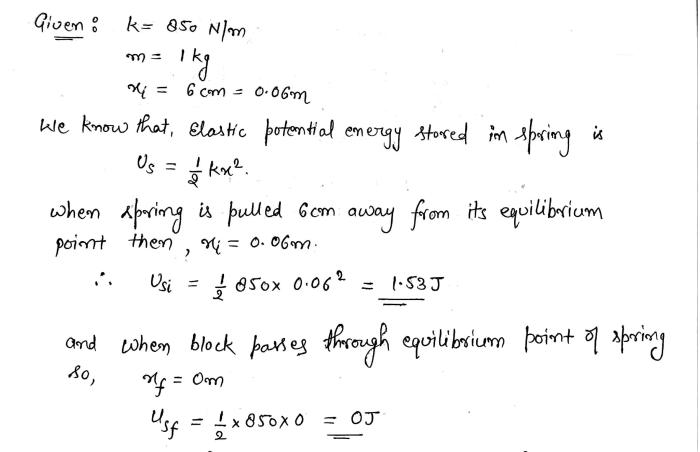 Given: k = 850 N/m
m = 1 kg
xi = 6 cm = 0.06m
We know that, Elastic potential energy stored in spring is
Us = 1/2 kx².
when spring is pulled 6cm away from its equilibrium
point then, xi = 0.06m.
∴ Usi = 1/2 850 x 0.06² = 1.53 J
and when block passes through equilibrium point of spring
so, xf = 0m
Usf = 1/2 x 850 x 0 = 0J